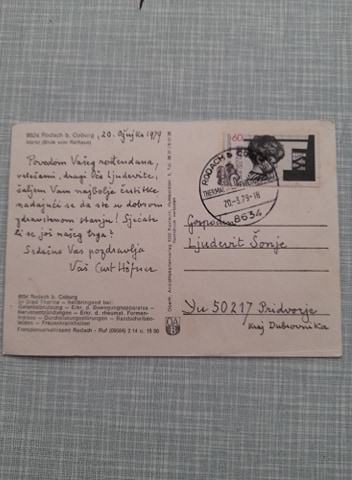 8634 Rodach b. Coburg
Markt (Blick vom Rathaus)
20. Ožujka 1979
Povodom Vašeg rođendana,
velecijenj. dragi Vas Ljudevite,
šaljem Vam najbolje čestitke
nadajući se da ste u dobrom
zdravstvenom stanju! Sjećate
li se još našeg trga?
Srdačno Vas pozdravlja
Vaš Curt Höfner
8634 Rodach b. Coburg
Erkr. d. Bewegungsapparates –
– Durchblutungsstörungen – Bandscheiben-
leiden – Frauenkrankheiten
Fremdenverkehrsamt Rodach - Ruf (09564) 2 14 u. 15 50
RODACH b. COBURG
20.-3.79-18
8634
60
Gospodin
Ljudevit Šonje
Yu 50217 Pridvorje
Kraj Dubrovnika